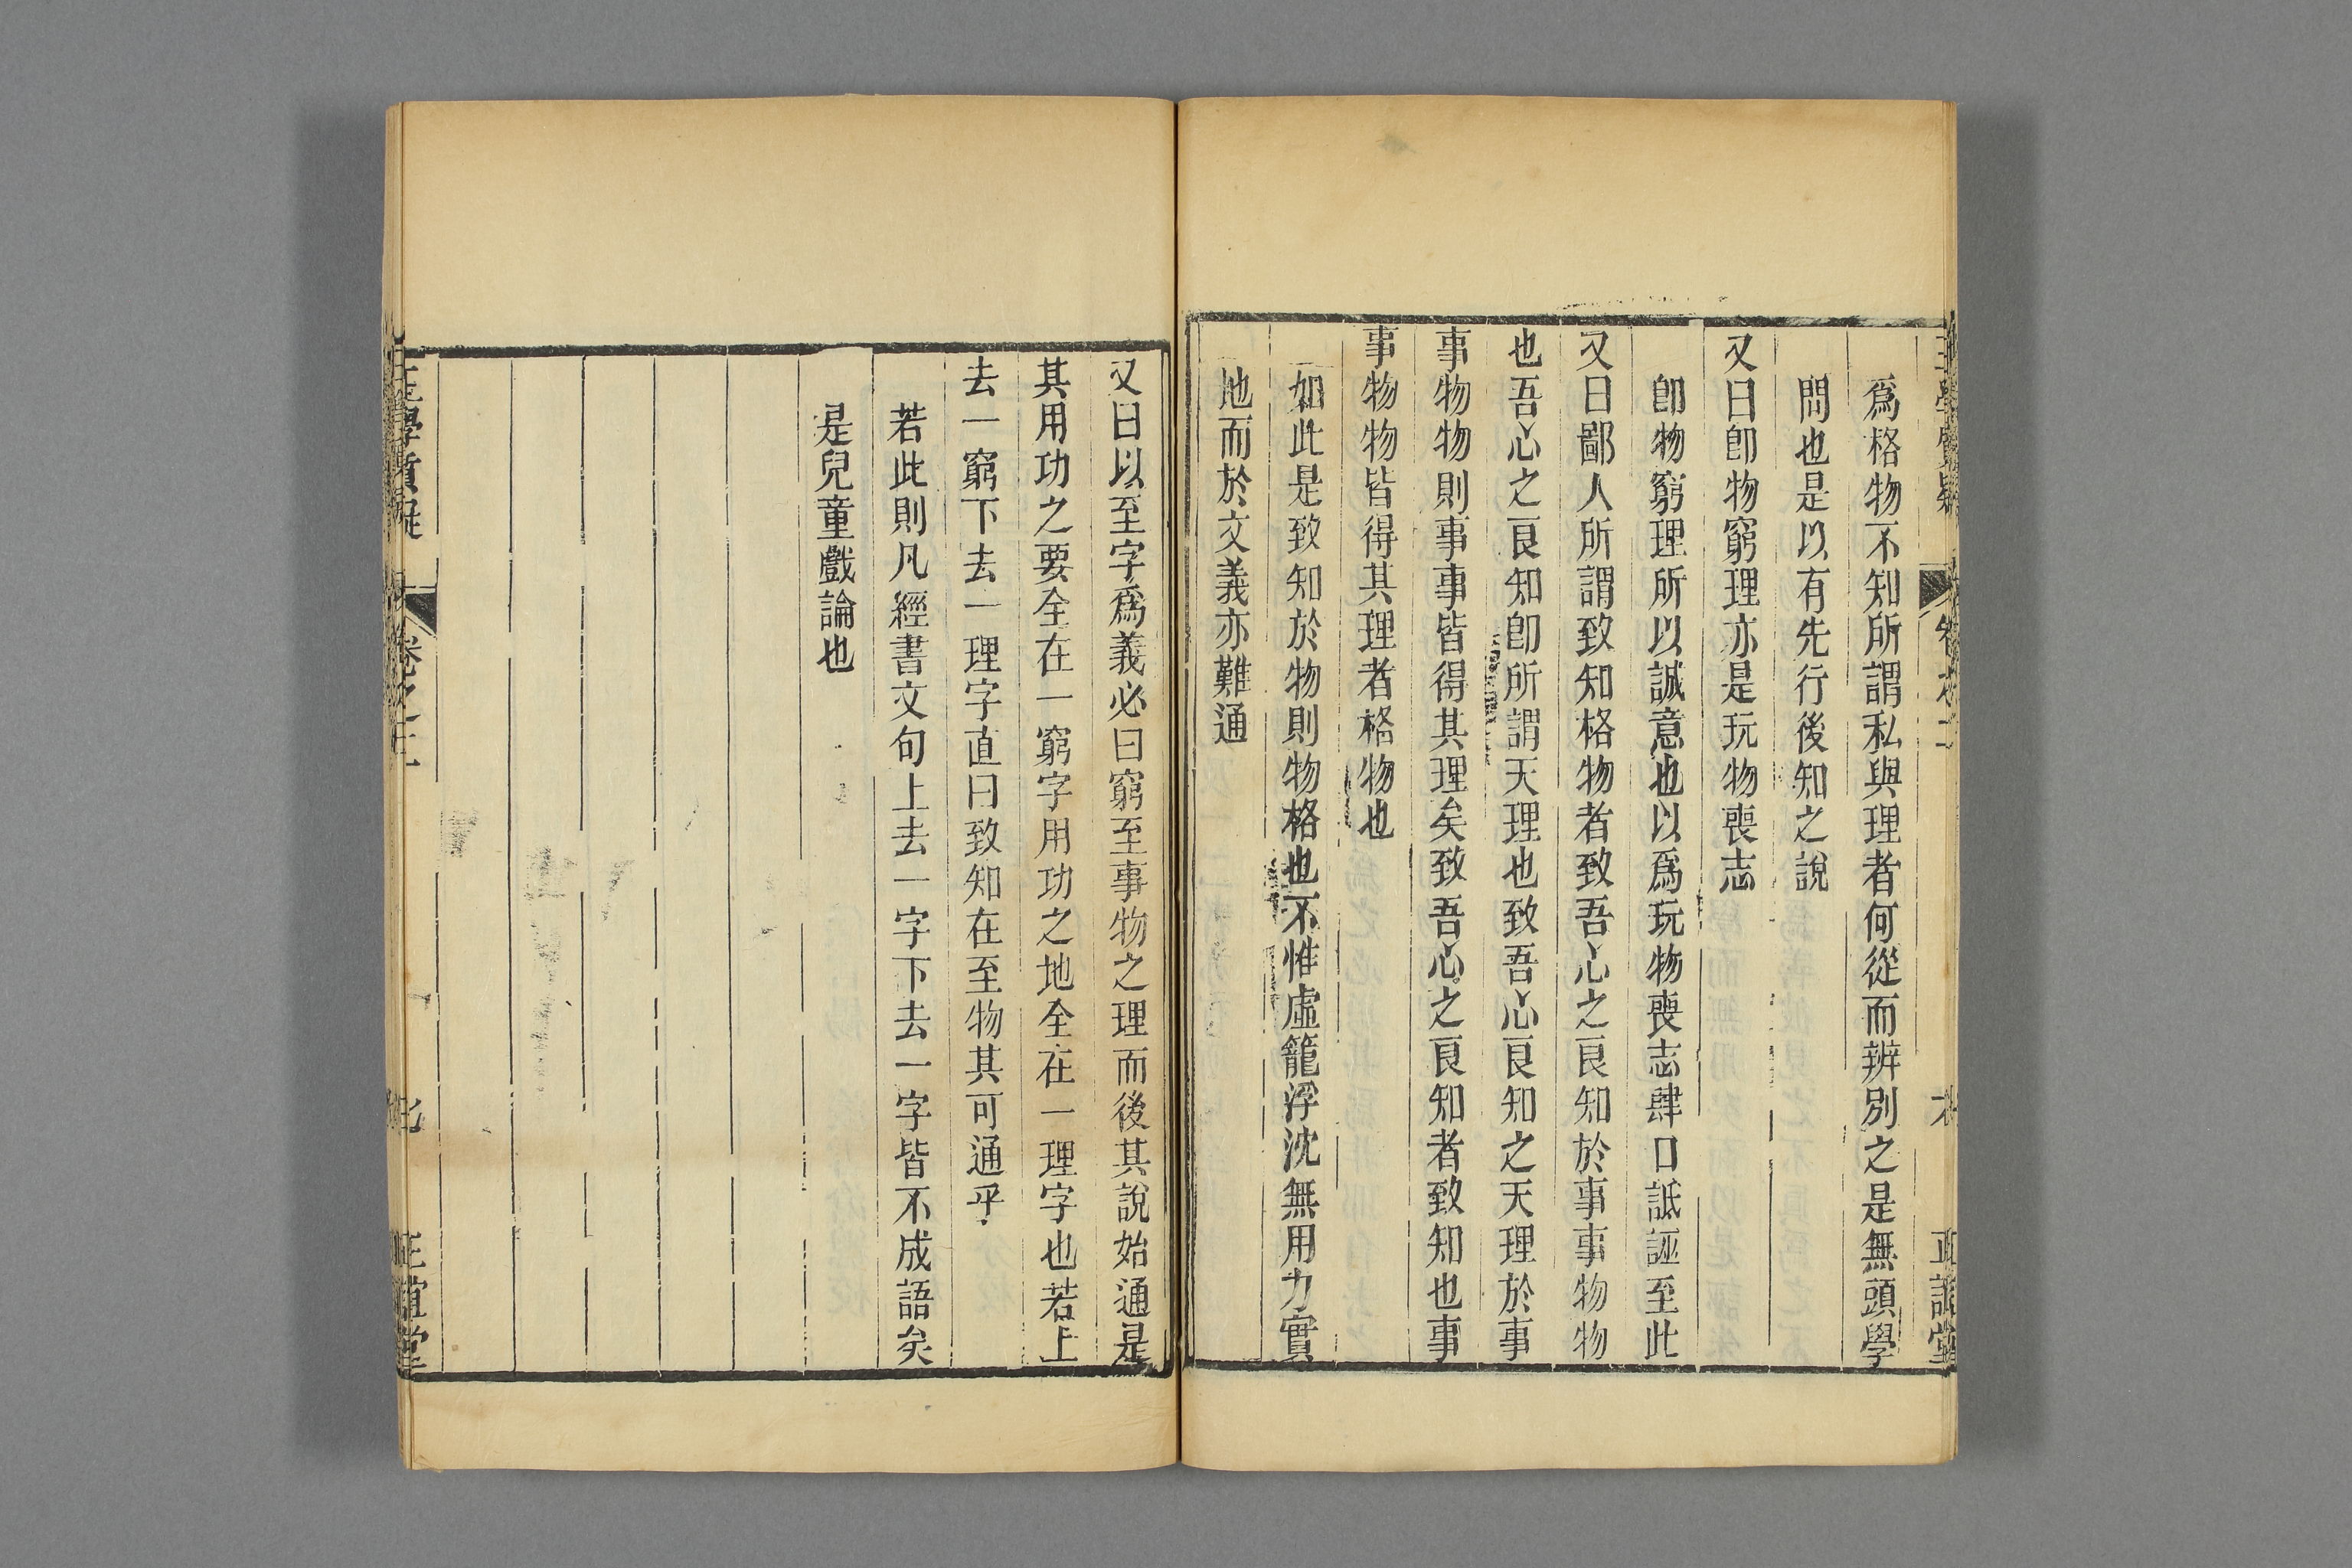 爲格物不知所謂私與理者何從而辨別之是無頭學
問也是以有先行後知之說
又曰卽物窮理亦是玩物喪志
卽物窮理所以誠意也以爲玩物喪志肆口詆誣至此
又曰鄙人所謂致知格物者致吾心之良知於事事物物
也吾心之良知卽所謂天理也致吾心良知之天理於事
事物物則事事皆得其理矣致吾心之良知者致知也事
事物物皆得其理者格物也
如此是致知於物則物格也不惟虛籠浮沈無用力實
地而於文義亦難通
又曰以至字爲義必曰窮至事物之理而後其說始通是
其用功之要全在一窮字用功之地全在一理字也若上
去一窮下去一理字直曰致知在至物其可通乎
若此則凡經書文句上去一字下去一字皆不成語矣
是兒童戲論也
王學質疑
卷之二
正誼堂